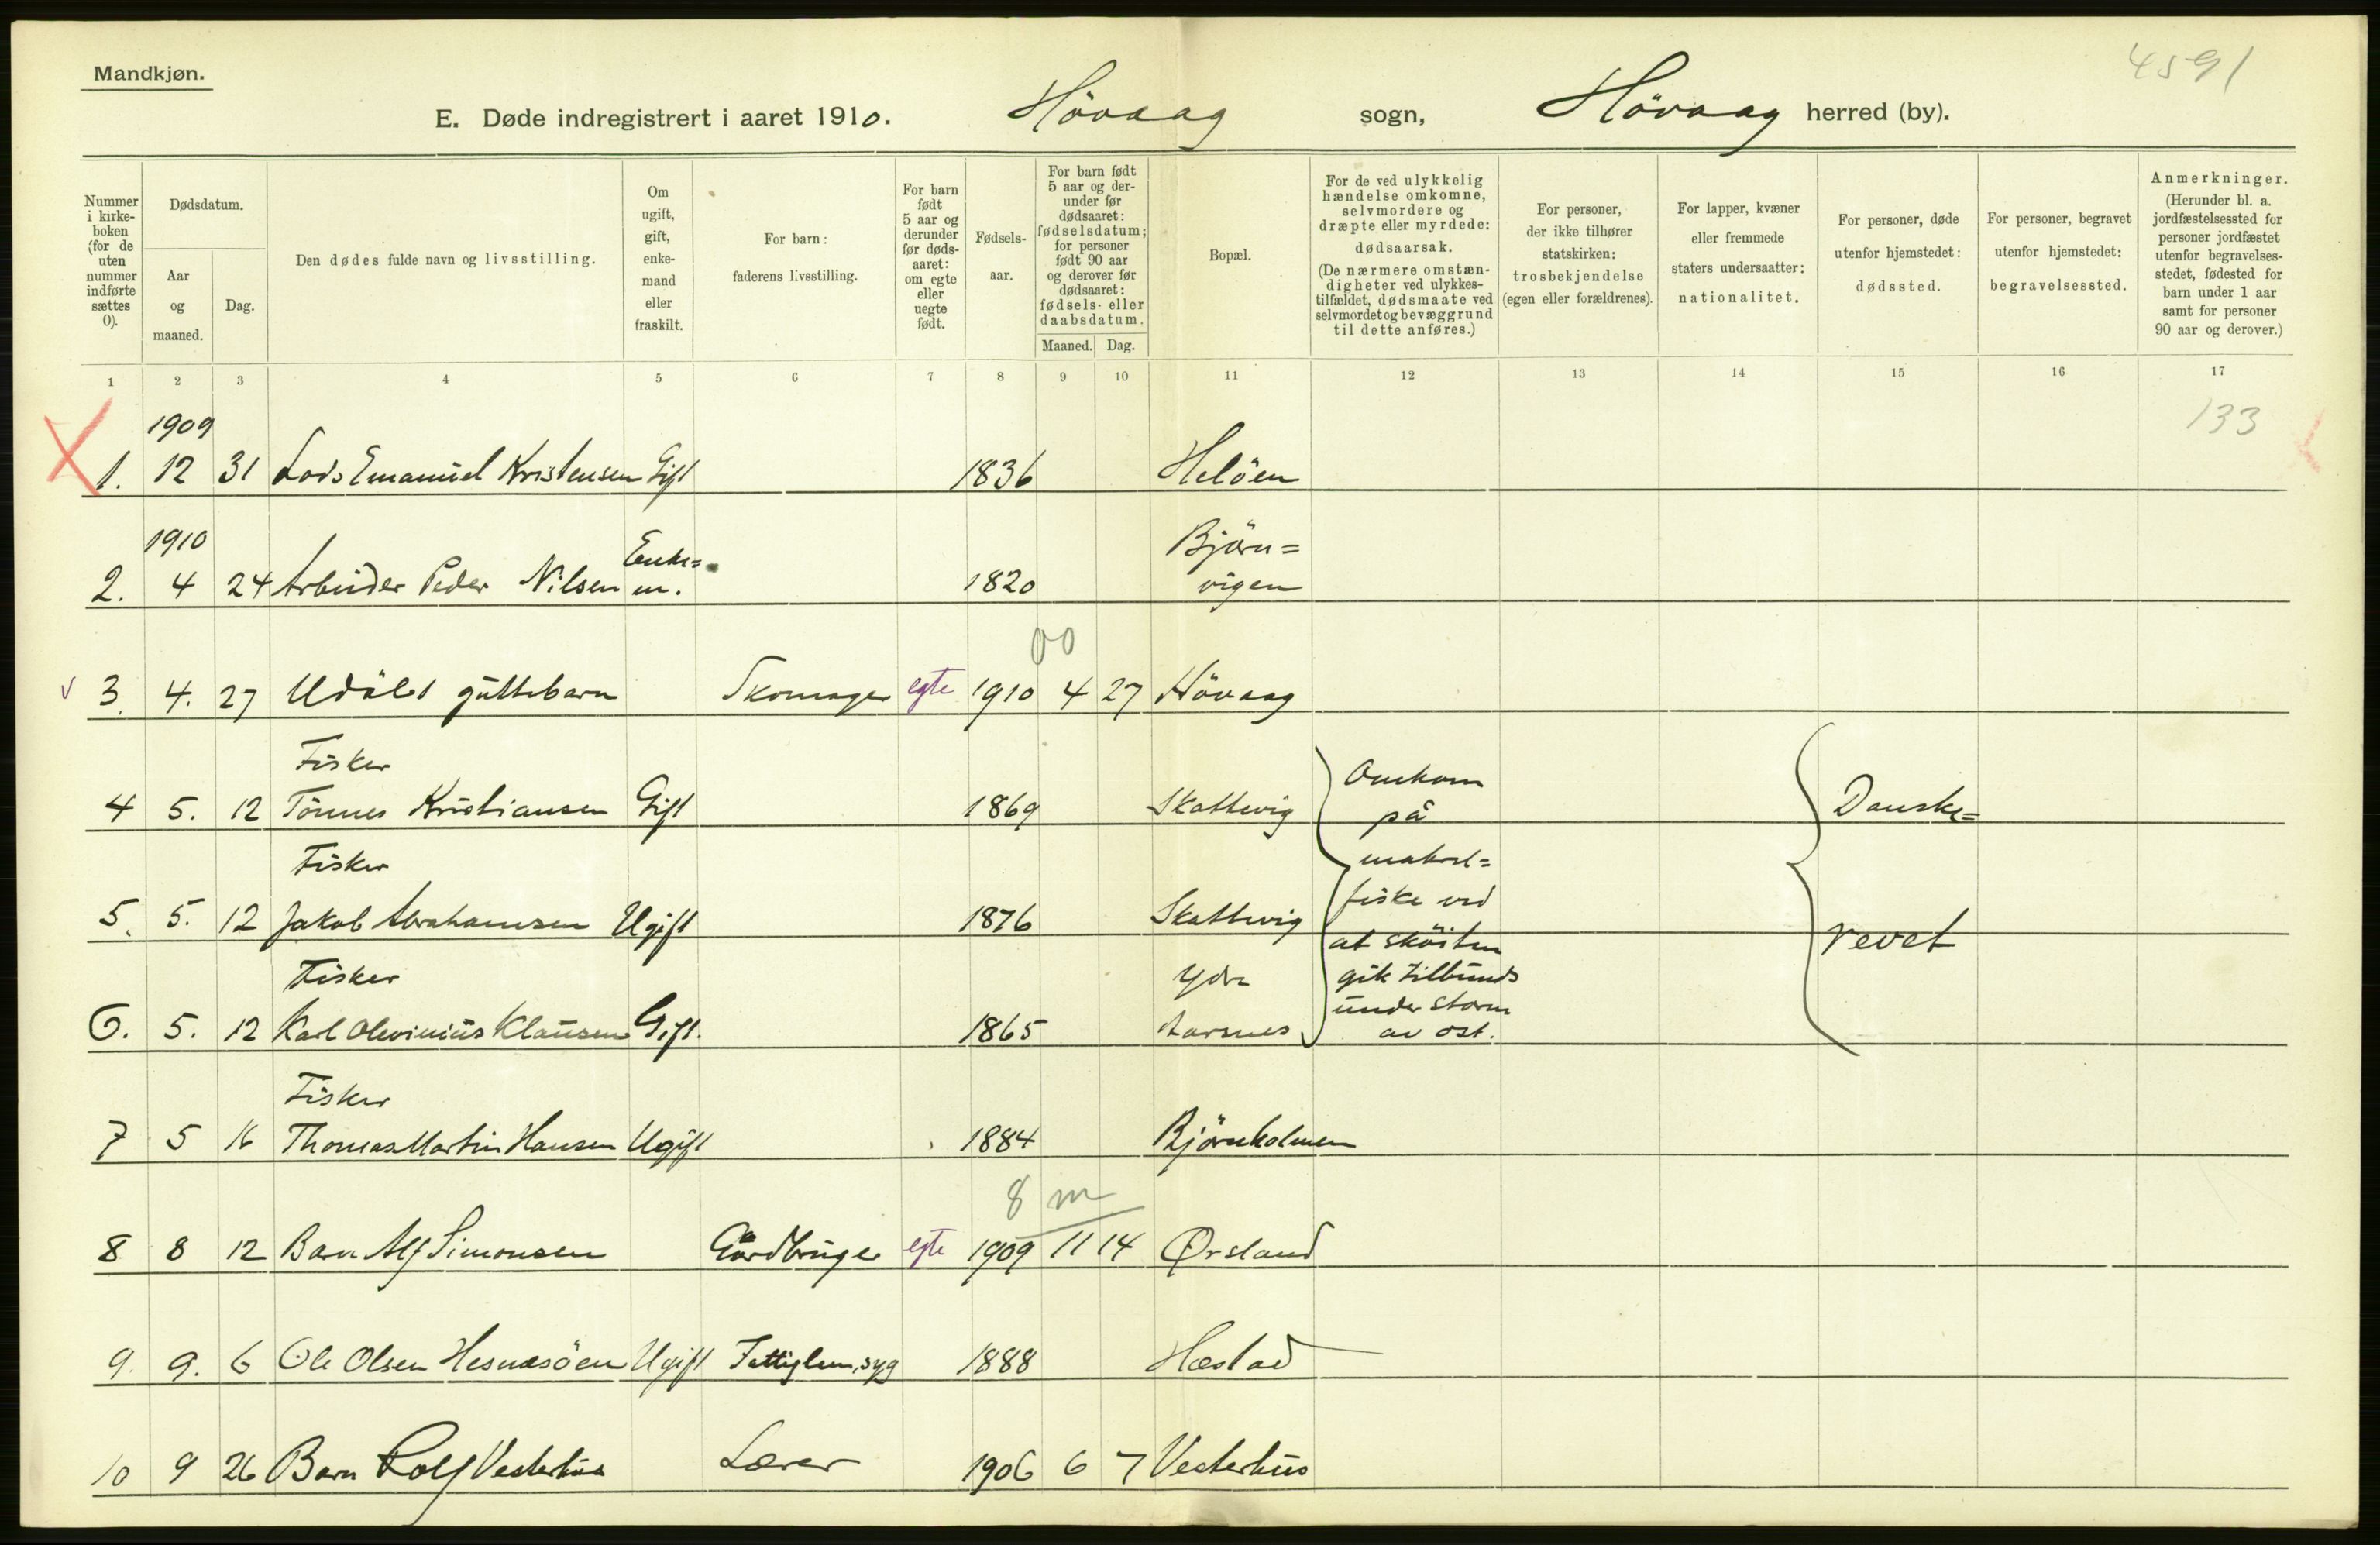 4591
Mandkjøn.
E. Døde indregistrert i aaret 1910. Hövaag sogn, Hövaag herred (by).
Nummer i kirke- boken (for de uten nummer indførte sættes 0).
Dødsdatum.
Aar og maaned.
Dag.
Den dødes fulde navn og livsstilling.
Om ugift, gift, enke- mand eller fraskilt.
For barn: faderens livsstilling.
For barn født 5 aar og derunder før døds- aaret: om egte eller uegte født.
Fødsels- aar.
For barn født 5 aar og der- under før dødsaaret: fødselsdatum; for personer født 90 aar og derover før dødsaaret: fødsels- eller daabsdatum.
Maaned. Dag.
Bopæl.
For de ved ulykkelig hændelse omkomne, selvmordere og dræpte eller myrdede: dødsaarsak. (De nærmere omstæn- digheter ved ulykkes- tilfældet, dødsmaate ved selvmordet og bevæggrund til dette anføres.)
For personer, der ikke tilhører statskirken: trosbekjendelse (egen eller forældrenes).
For lapper, kvæner eller fremmede staters undersaatter: nationalitet.
For personer, døde utenfor hjemstedet: dødssted.
For personer, begravet utenfor hjemstedet: begravelsessted.
Anmerkninger. (Herunder bl. a. jordfæstelsessted for personer jordfæstet utenfor begravelses- stedet, fødested for barn under 1 aar samt for personer 90 aar og derover.)
1 2 3 4 5 6 7 8 9 10 11 12 13 14 15 16 17
1909 133
1. 12 31 Lods Emanuel Kristensen Gift 1836 Helöen
1910 Enke= Björn=
2. 4 24 Arbeider Peder Nilsen m. 1820 vigen
00
3. 4. 27 Udöbt guttebarn Skomager egte 1910 4 27 Hövaag
Fisker Omkom
4 5. 12 Tönnes Kristiansen Gift 1869 Skattevig på Danske=
Fisker makrel=
fiske ved
5. 5. 12 Jakob Abrahamsen Ugift 1876 Skattevig at sköiten revet
Fisker Ydre gik tilbunds
under storm
6. 5. 12 Karl Olevinius Klausen Gift. 1865 Aarsnes av ost.
Fisker
7 5 16 Thomas Martin Hansen Ugift 1884 Björnholmen
8 m
8 8 12 Barn Alf Simonsen Gårdbruger egte 1909 11 14 Ørsland
9. 9. 6 Ole Olsen Hesnæsöen Ugift Fattiglem, syg 1888 Hæstad
10 9 26 Barn Rolf Vesterhus Lærer 1906 6 7 Vesterhus